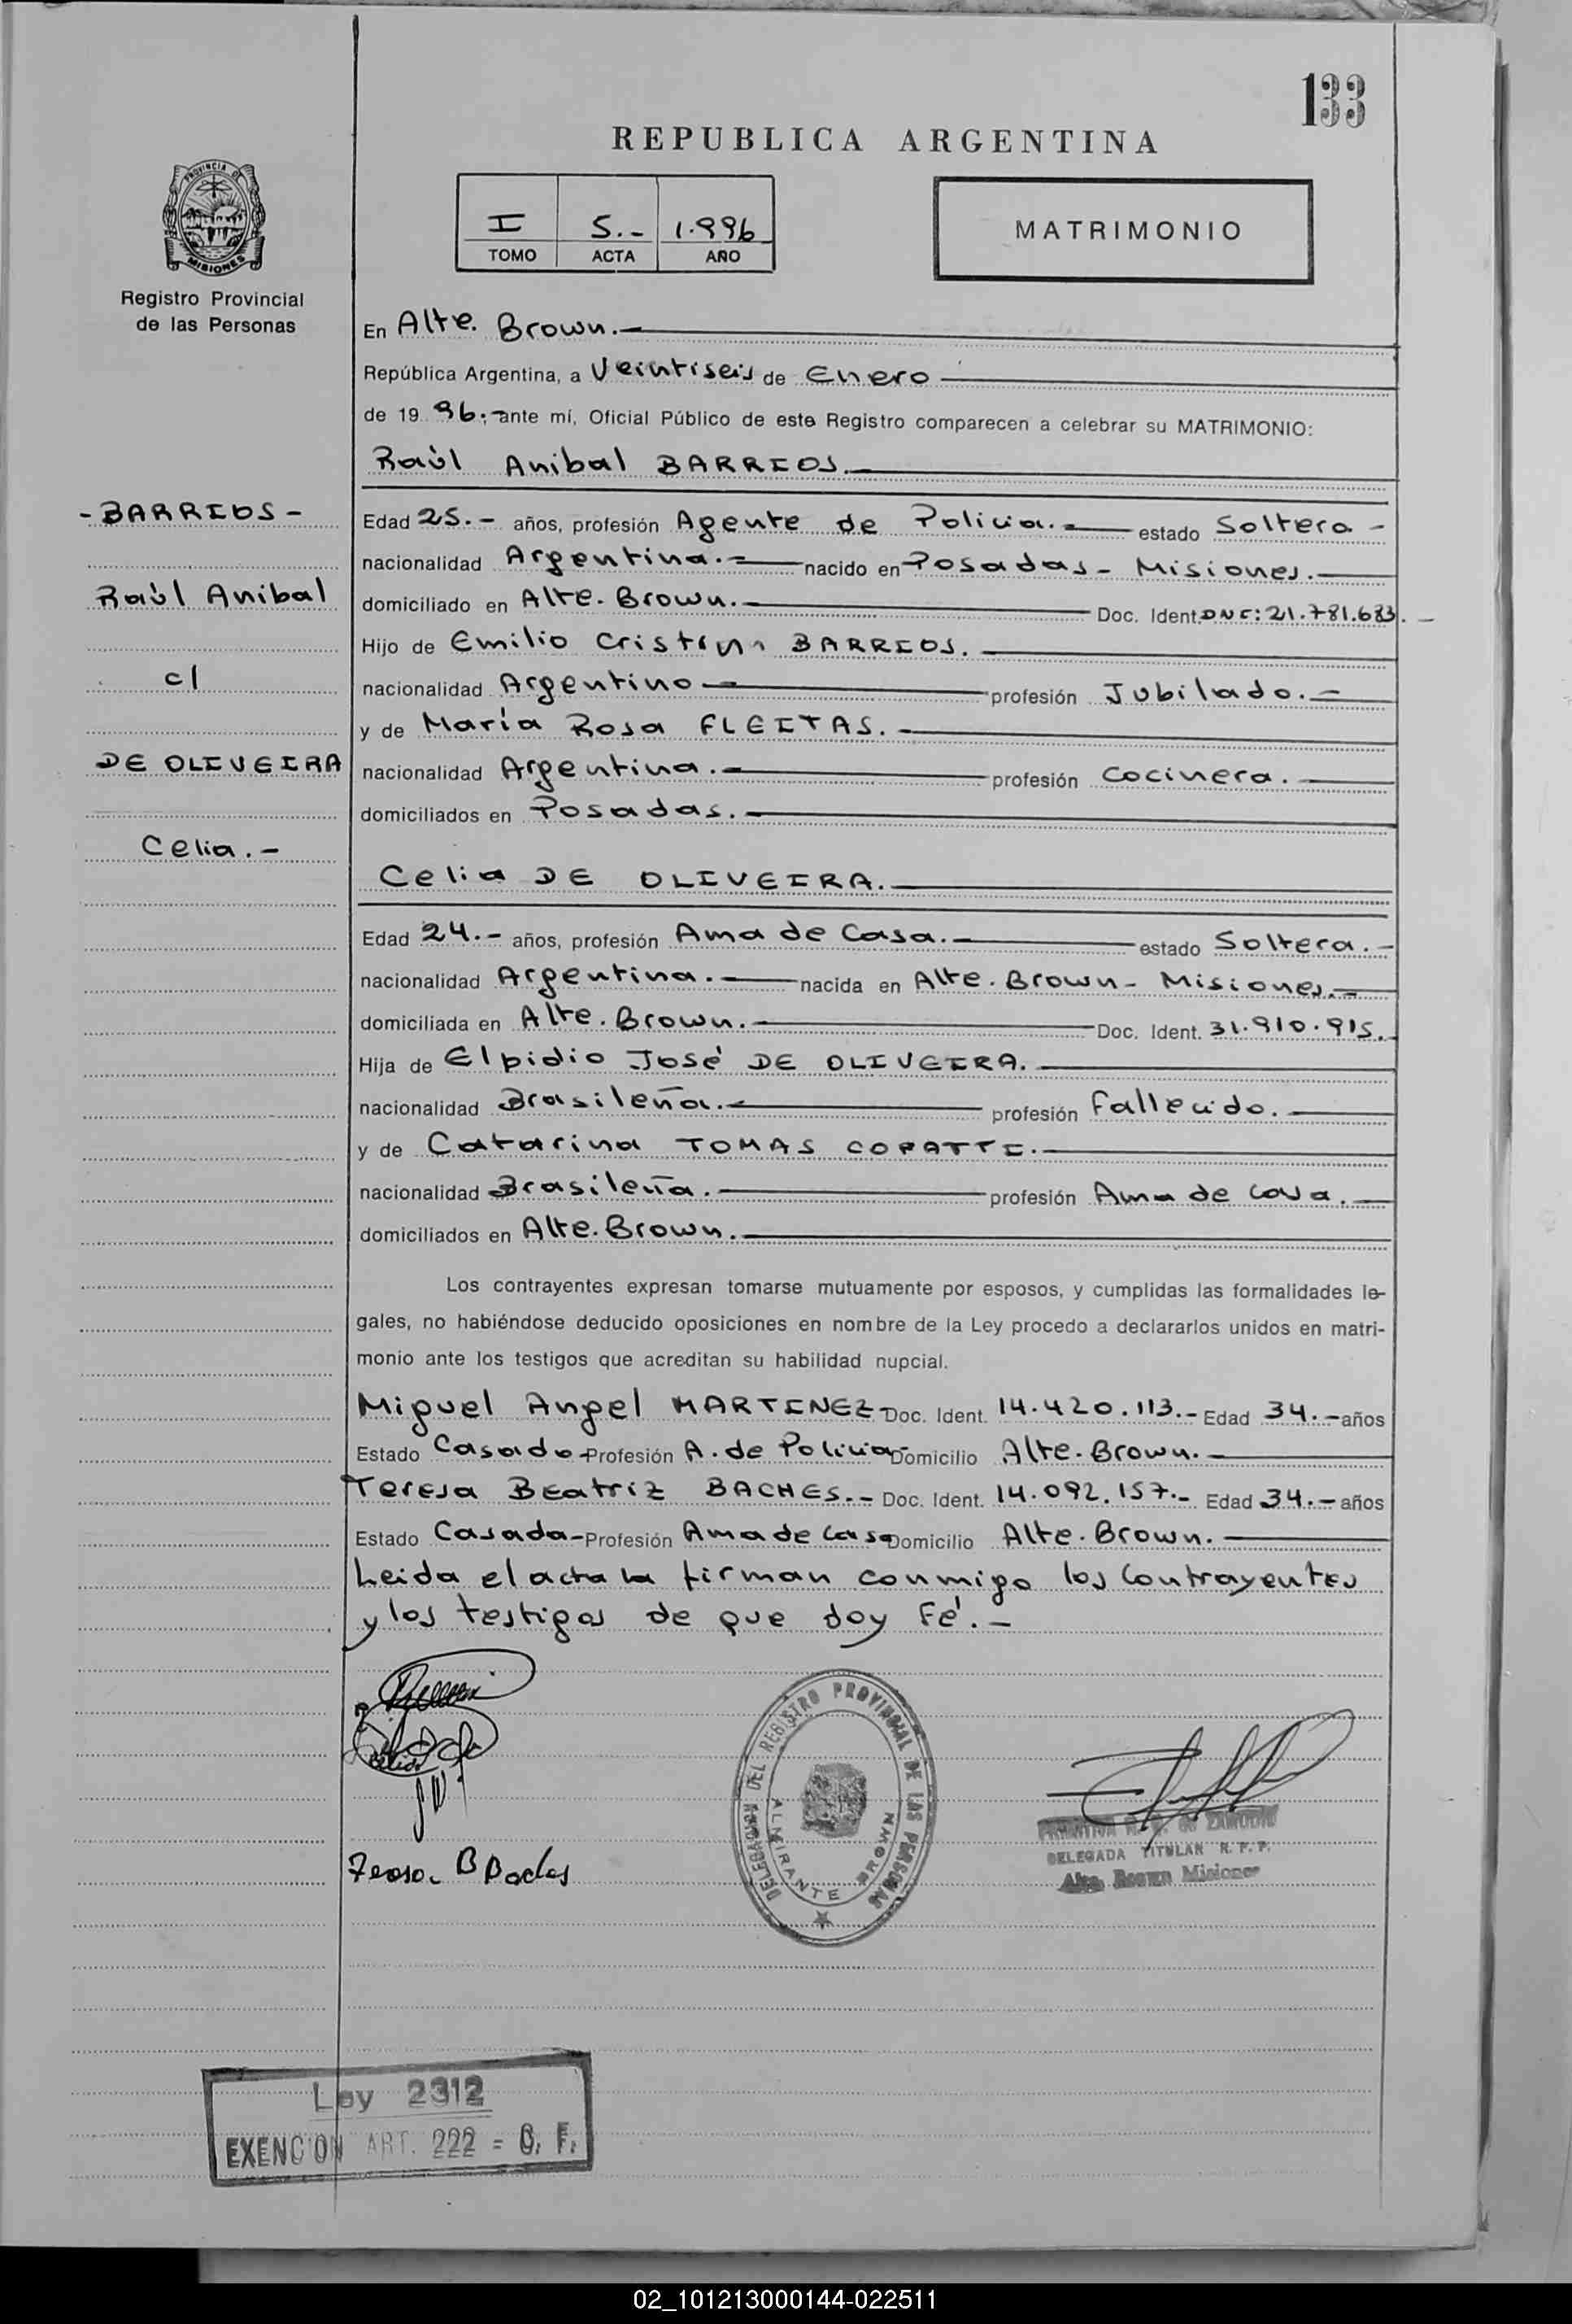 133
REPUBLICA ARGENTINA
PROVINCIA DE
MISIONES
Registro Provincial
de las Personas
I S.- 1.996
TOMO ACTA AÑO
MATRIMONIO
En Alte. Brown.-
República Argentina, a Veintiseis de Enero
de 19 96.- ante mí, Oficial Público de este Registro comparecen a celebrar su MATRIMONIO:
Raúl Anibal BARRIOS.
- BARRIOS -
Raúl Anibal
c/
DE OLIVEIRA
Celia.-
Edad 25.- años, profesión Agente de Policia.- estado Soltero -
nacionalidad Argentina.- nacido en Posadas - Misiones.
domiciliado en Alte. Brown.- Doc. Ident. DNI: 21.781.683.-
Hijo de Emilio BARRIOS.
nacionalidad Argentino profesión Jubilado.-
y de María Rosa FLEITAS.-
nacionalidad Argentina.- profesión Cocinera.
domiciliados en Posadas.-
Celia DE OLIVEIRA.
Edad 24.- años, profesión Ama de Casa.- estado Soltera.-
nacionalidad Argentina.- nacida en Alte. Brown - Misiones.-
domiciliada en Alte. Brown.- Doc. Ident. 31.910.915.
Hija de Elpidio José DE OLIVEIRA.
nacionalidad Brasileña.- profesión Fallecido.
y de Catarina TOMAS COPATTI.-
nacionalidad Brasileña.- profesión Ama de casa.-
domiciliados en Alte. Brown.-
Los contrayentes expresan tomarse mutuamente por esposos, y cumplidas las formalidades le-
gales, no habiéndose deducido oposiciones en nombre de la Ley procedo a declararlos unidos en matri-
monio ante los testigos que acreditan su habilidad nupcial.
Miguel Angel MARTINEZ- Doc. Ident. 14.420.113.- Edad 34.- años
Estado Casado- Profesión A. de Policia- Domicilio Alte. Brown.-
Teresa Beatriz BACHES.- Doc. Ident. 14.092.157.- Edad 34.- años
Estado Casada- Profesión Ama de casa Domicilio Alte. Brown.
Leida el acta la firman conmigo los Contrayentes
y los testigos de que doy Fé.-
DELEGACION DEL REGISTRO PROVINCIAL DE LAS PERSONAS
ALMIRANTE BROWN
DELEGADA TITULAR R. P. P.
Alte. Brown Misiones
Ley 2312
EXENCION ART. 222 = C. F.
02_101213000144-022511